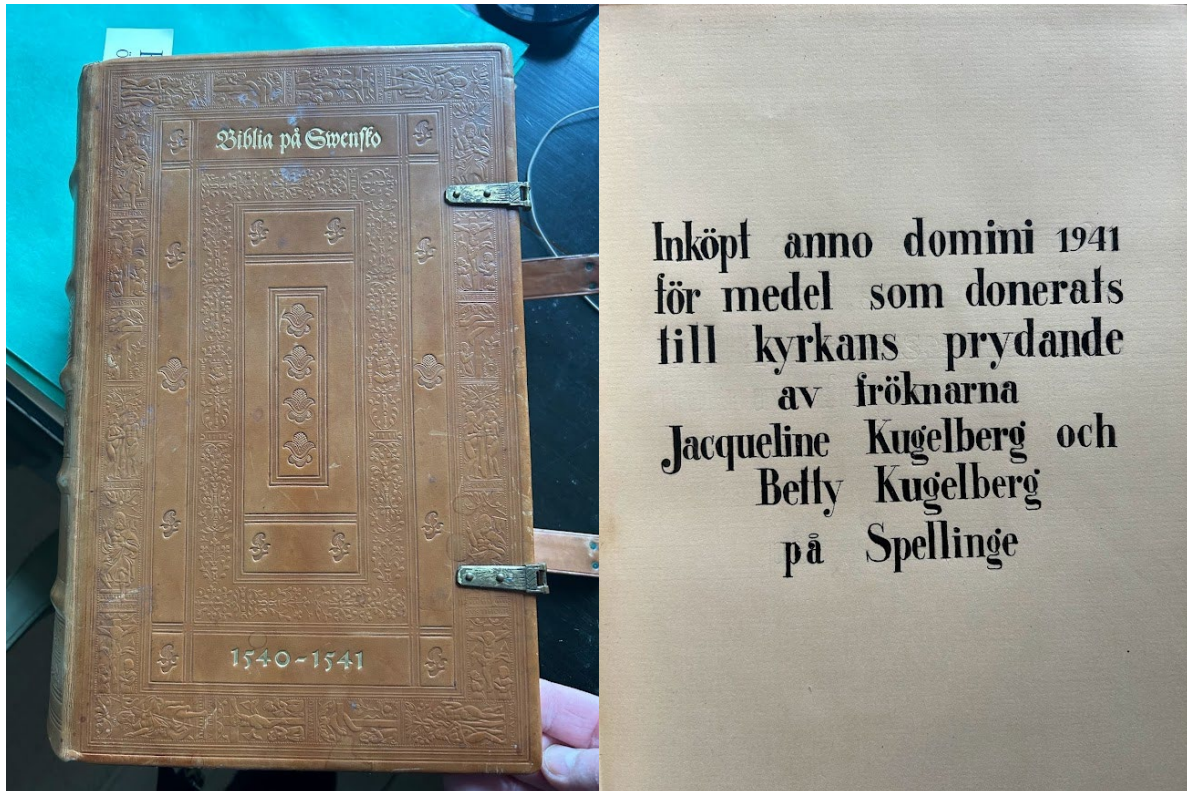 Biblia på Swensko
1540-1541
Inköpt anno domini 1941
för medel som donerats
till kyrkans prydande
av fröknarna
Jacqueline Kugelberg och
Betty Kugelberg
på Spellinge